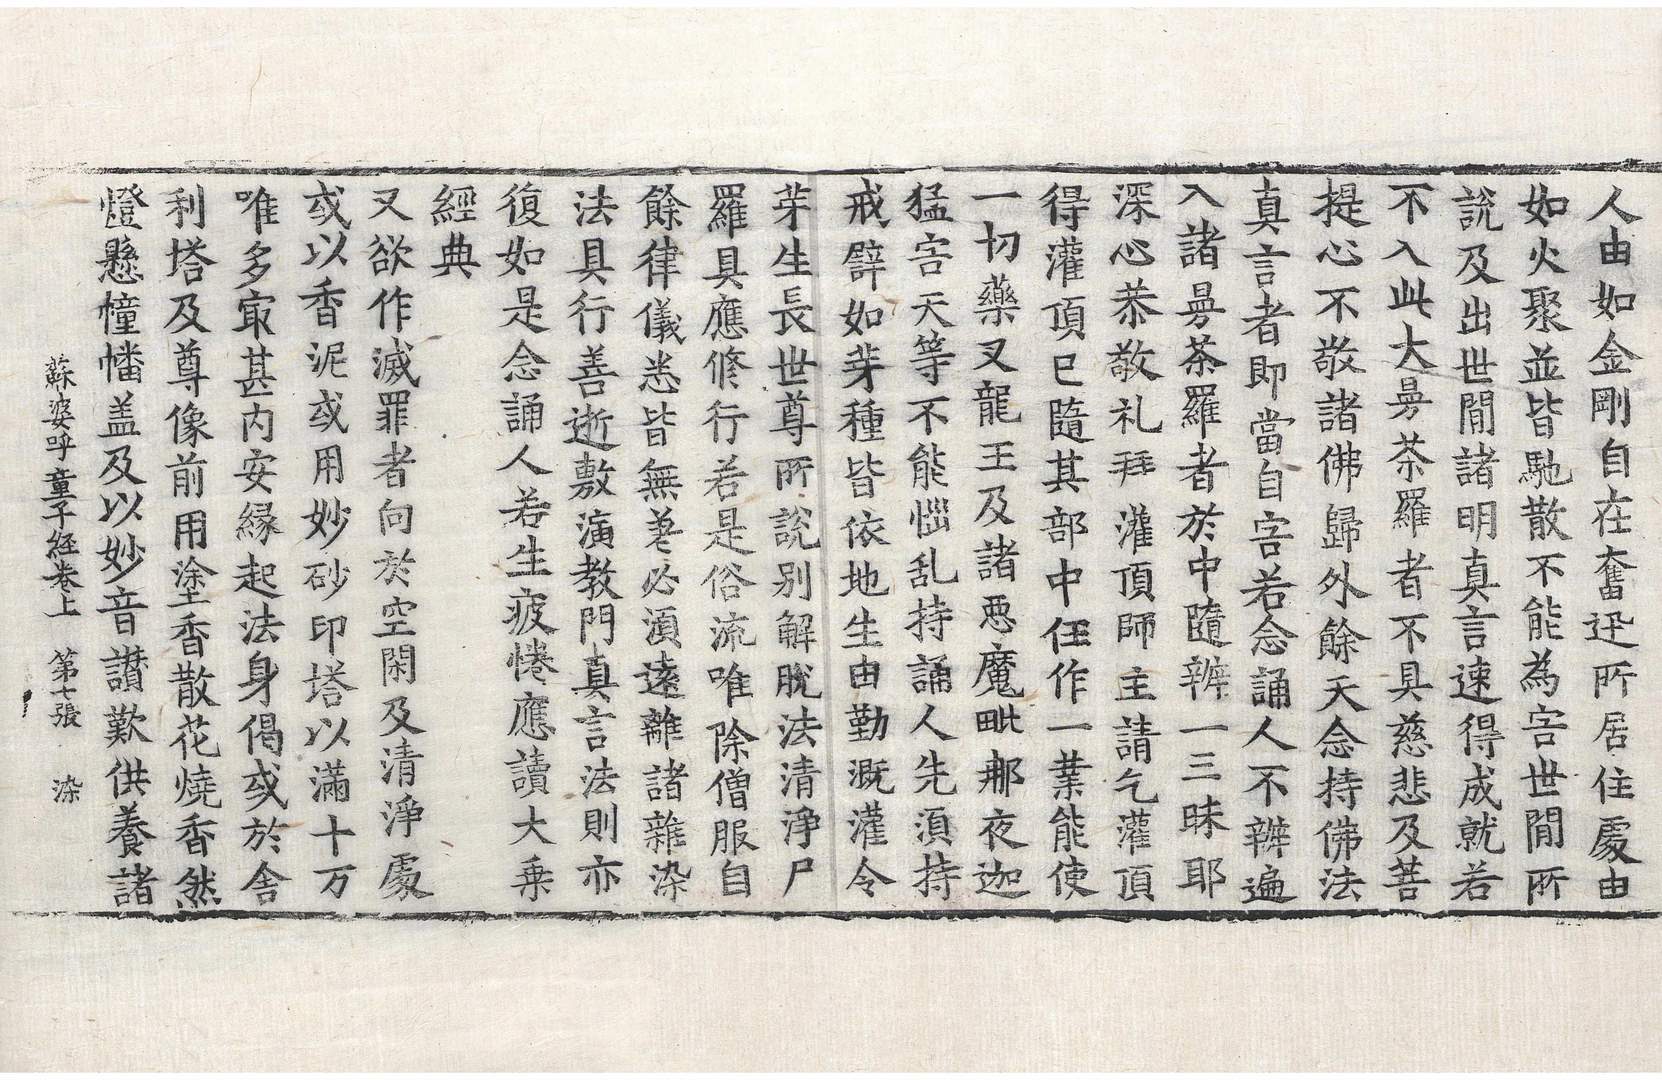 人由如金剛自在奮迅所居住處由
如火聚並皆馳散不能為害世間所
說及出世間諸明真言速得成就若
不入此大曼茶羅者不具慈悲及菩
提心不敬諸佛歸外餘天念持佛法
真言者即當自害若念誦人不辨遍
入諸曼茶羅者於中隨辨一三昧耶
深心恭敬礼拜灌頂師主請乞灌頂
得灌頂已隨其部中任作一業能使
一切藥叉龍王及諸惡魔毗那夜迦
猛害天等不能惱乱持誦人先湏持
戒譬如芽種皆依地生由勤溉灌令
芽生長世尊所說別解脫法清淨尸
羅具應修行若是俗流唯除僧服自
餘律儀悉皆無差必湏遠離諸雜染
法具行善逝敷演教門真言法則亦
復如是念誦人若生疲惓應讀大乗
經典
又欲作滅罪者向於空閑及清淨處
或以香泥或用妙砂印塔以滿十万
唯多冣甚內安緣起法身偈或於舍
利塔及尊像前用塗香散花燒香然
燈懸幢幡盖及以妙音讃歎供養諸
蘇婆呼童子經卷上　第七張　染